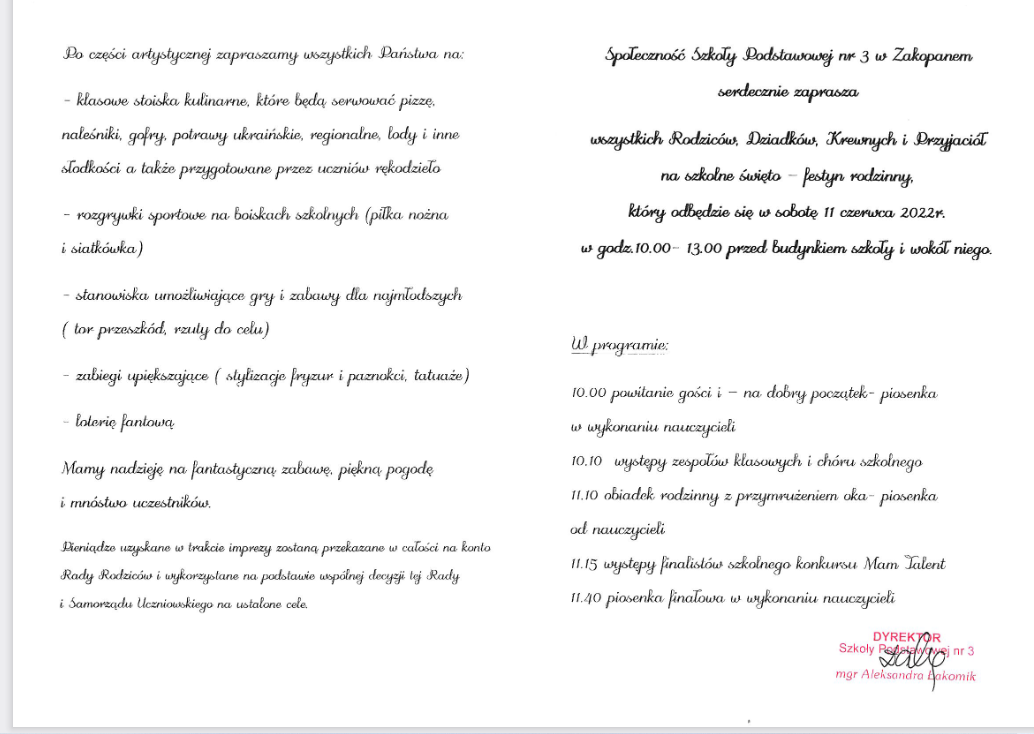 Po części artystycznej zapraszamy wszystkich Państwa na:
- klasowe stoiska kulinarne, które będą serwować pizzę,
naleśniki, gofry, potrawy ukraińskie, regionalne, lody i inne
słodkości a także przygotowane przez uczniów rękodzieło
- rozgrywki sportowe na boiskach szkolnych (piłka nożna
i siatkówka)
- stanowiska umożliwiające gry i zabawy dla najmłodszych
( tor przeszkód, rzuty do celu)
- zabiegi upiększające ( stylizacje fryzur i paznokci, tatuaże)
- loterię fantową
Mamy nadzieję na fantastyczną zabawę, piękną pogodę
i mnóstwo uczestników.
Pieniądze uzyskane w trakcie imprezy zostaną przekazane w całości na konto
Rady Rodziców i wykorzystane na podstawie wspólnej decyzji tej Rady
i Samorządu Uczniowskiego na ustalone cele.
Społeczność Szkoły Podstawowej nr 3 w Zakopanem
serdecznie zaprasza
wszystkich Rodziców, Dziadków, Krewnych i Przyjaciół
na szkolne święto – festyn rodzinny,
który odbędzie się w sobotę 11 czerwca 2022r.
w godz.10.00- 13.00 przed budynkiem szkoły i wokół niego.
W programie:
10.00 powitanie gości i – na dobry początek- piosenka
w wykonaniu nauczycieli
10.10 występy zespołów klasowych i chóru szkolnego
11.10 obiadek rodzinny z przymrużeniem oka- piosenka
od nauczycieli
11.15 występy finalistów szkolnego konkursu Mam Talent
11.40 piosenka finałowa w wykonaniu nauczycieli
DYREKTOR
Szkoły Podstawowej nr 3
mgr Aleksandra Łakomik